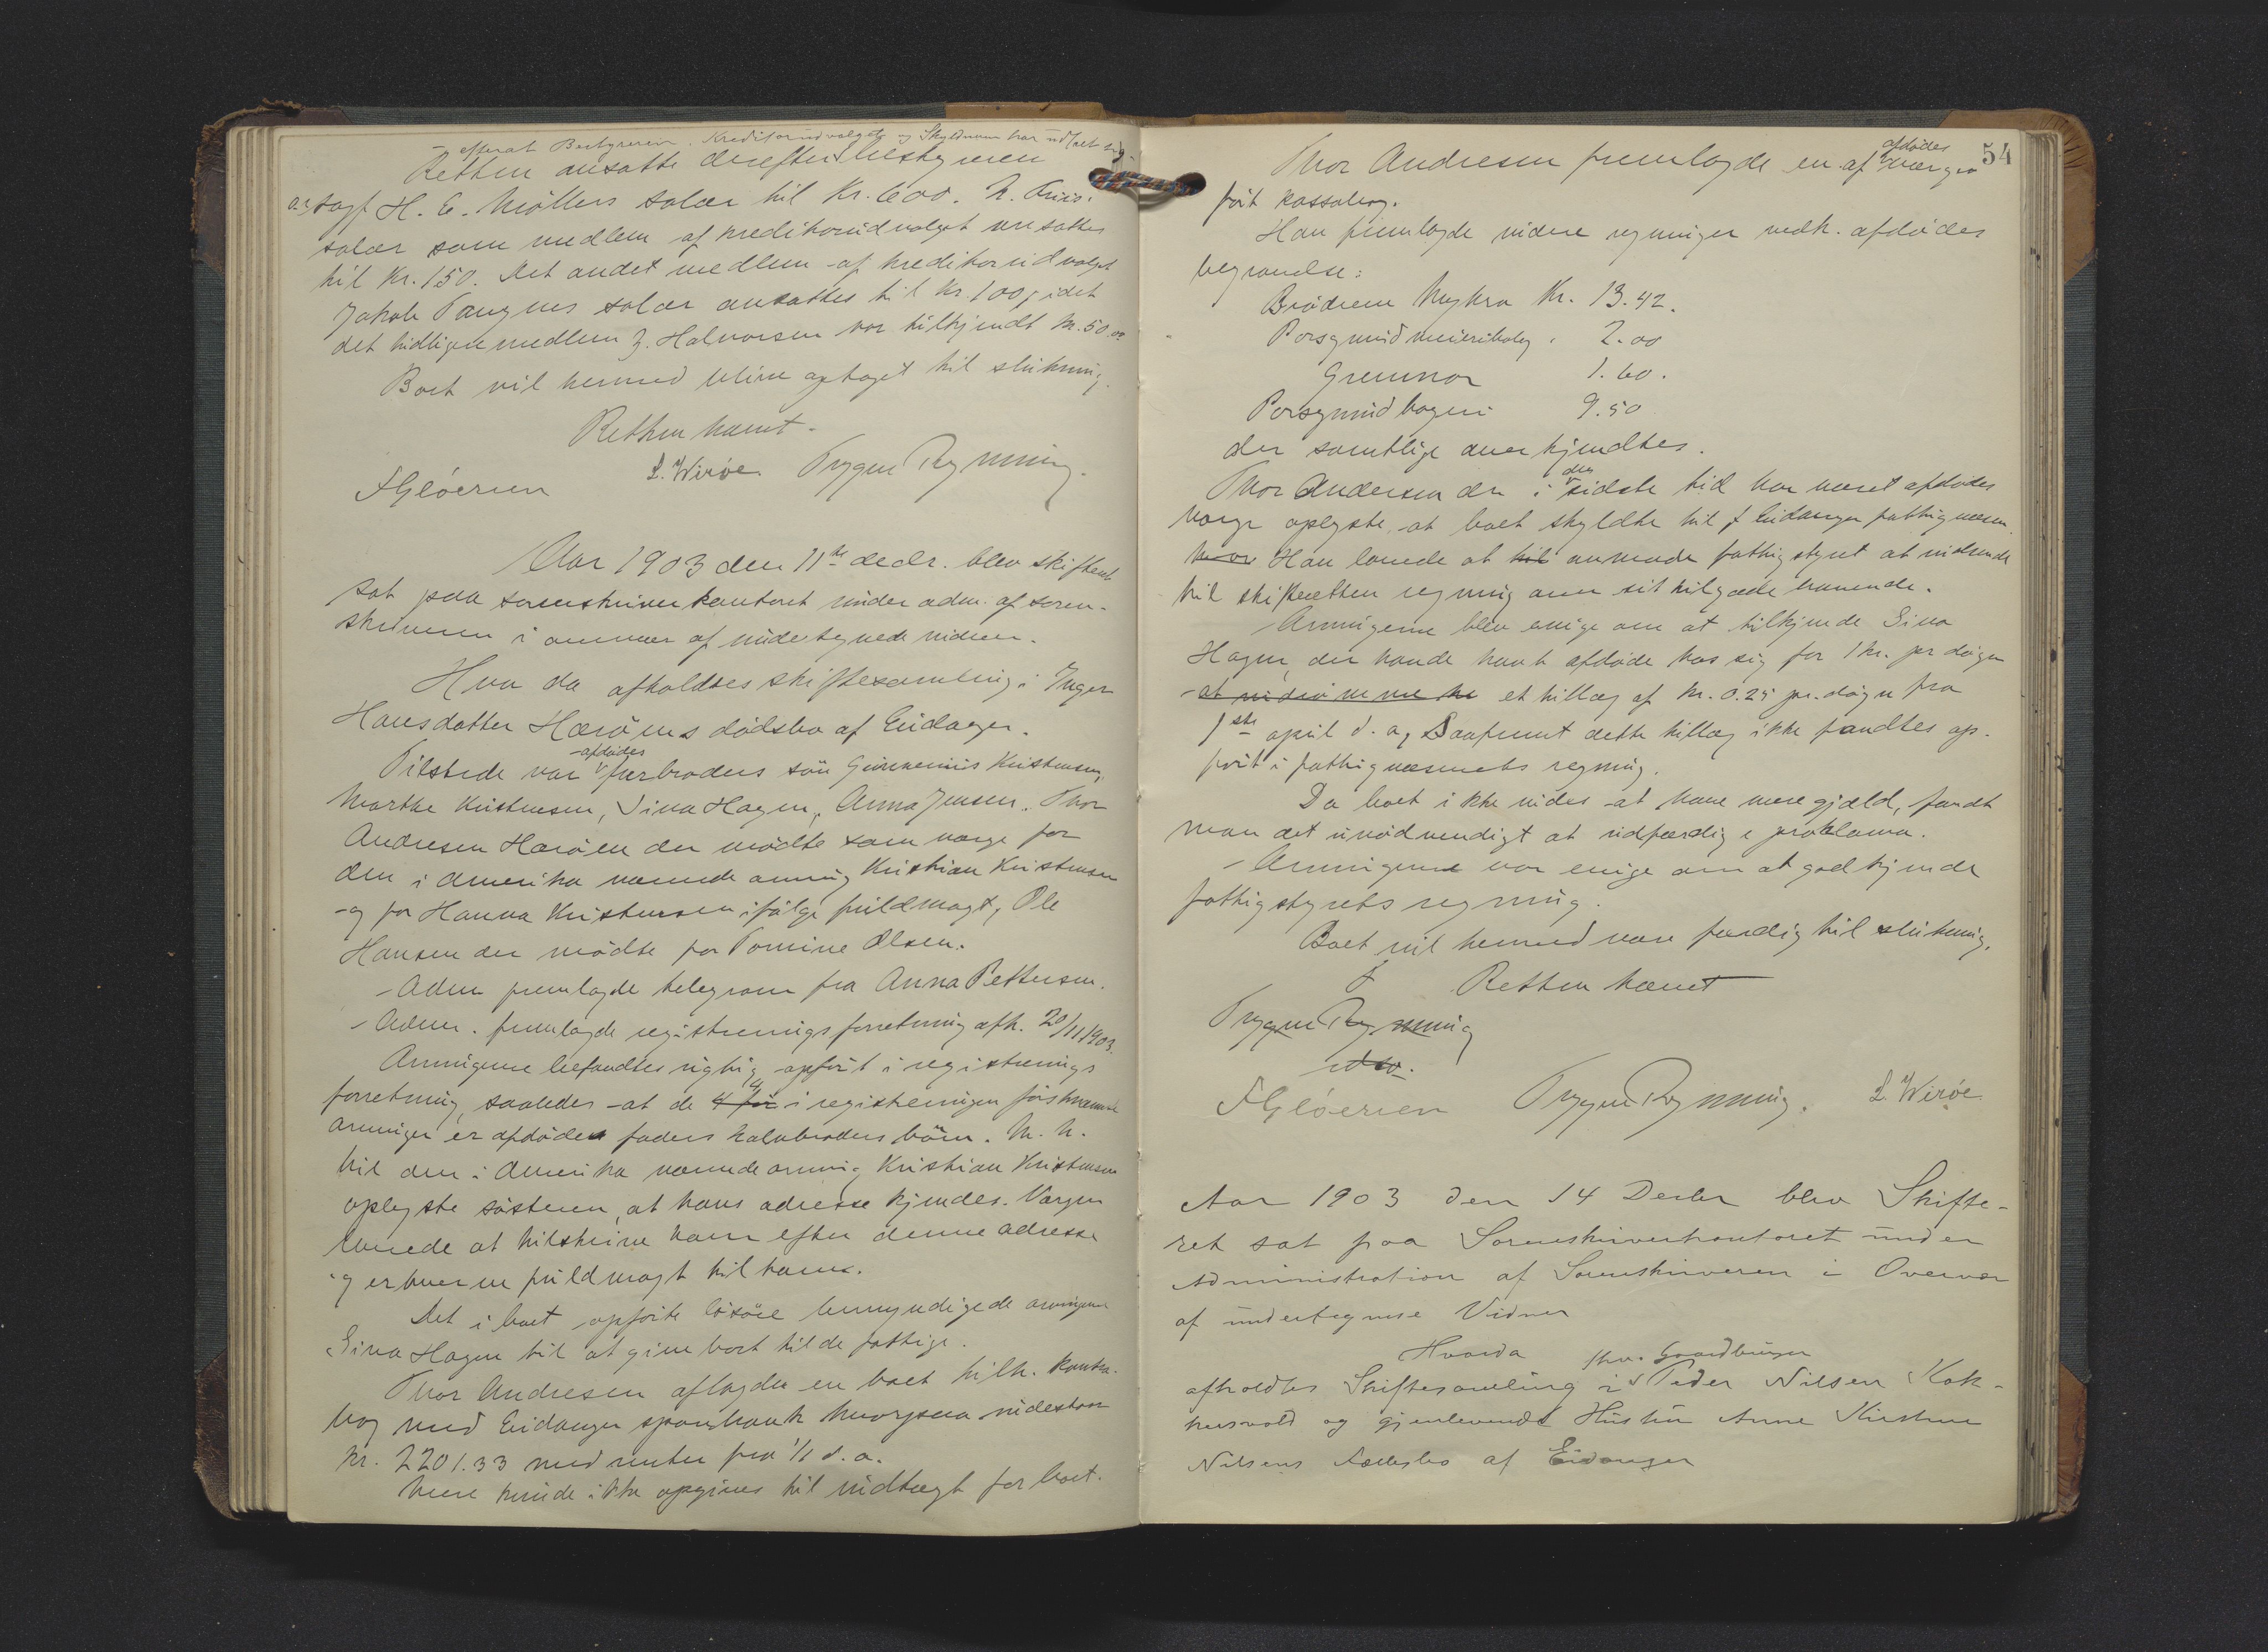 - efterat Bestyreren, Kreditorudvalget og Skyldneren har udtalt sig.
Retten ansatte derefter bestyreren
o.r.sagf. H. E. Möllers salær til Kr. 600. N. Friis.
salær som medlem af kreditorudvalget ansattes
til Kr. 150. Det andet medlem af kreditorudvalget
Jakob Tangnes salær ansattes til Kr. 100, idet
det tidligere medlem J. Halvorsen var tilkjendt Kr. 50.00
Boet vil hermed blive optaget til slutning.
Retten hævet.
FGlöersen L. Wirøe. Trygve Rynning.
Aar 1903 den 11te decbr. blev skifteret
sat paa sorenskriverkontoret under adm. af soren-
skriveren i overvær af undertegnede vidner.
Hvor da afholdtes skiftesamling i Inger
Hansdatter Herøens dödsbo af Eidanger.
Tilstede var afdödes farbroders sön Gunnerius Kristensen,
Marthe Kristensen, Sina Hagen, Anna Jensen. Thor
Andresen Herøen der mödte som værge for
den i Amerika værende arving Kristian Kristensen
og for Hanna Kristensen ifölge fuldmagt, Ole
Hansen der mödte for Tomine Olsen.
Adm. fremlagde telegram fra Anna Pettersen.
Adm. fremlagde registreringsforretning afh. 20/11 1903.
Arvingerne befandtes rigtig opfört i registrerings
forretning, saaledes at de 4 i registreringen förstnævnte
arvinger er afdödes faders halvbroders börn. M. h.
til den i Amerika værende arving Kristian Kristensen
oplyste sösteren, at hans adresse kjendes. Værgen
lovede at tilskrive ham efter denne adresse
og erhverve fuldmagt til ham.
Det i boet opförte lösöre bemyndigede arvingerne
Sina Hagen til at give bort til de fattige.
Thor Andresen aflagde en boet tilh. kontra-
bog med Eidanger sparebank hvorpaa indestaar
Kr. 2201.33 med renter fra 1/1 d. a.
Mere kunde ikke opgives til indtægt for boet.
54
Thor Andresen fremlagde en af afdödes værge
fört kassabog.
Han fremlagde videre regninger vedk. afdödes
begravelse:
Brödrene Nykra Kr. 13.42.
Porsgrund meieribolag . 2.00
Gremmar 1.60.
Porsgrund bageri 9.50
der samtlige anerkjendtes.
Thor Andersen der i den sidste tid har været afdödes
værge oplyste, at boet skyldte til Eidanger fattigvæsen
Han lovede at anmode fattigstyret at indsende
til skifteretten regning over sit tilgodehavende.
Arvingerne blev enige om at tilkjende Sina
Hagen, der havde havt afdöde hos sig for 1 kr. pr dögn
et tillæg af kr. 0.25 pr. dögn fra
1ste april d. a, Saafremt dette tillæg ikke fandtes op-
fört i fattigvæsenets regning.
Da boet ikke vides at have mere gjæld, fandt
man det unödvendigt at udfærdige proklama.
Arvingerne var enige om at godkjende
fattigstyrets regning.
Boet vil hermed være færdig til slutning.
Retten hævet
Trygve Rynning
FGlöersen Trygve Rynning. L. Wirøe
Aar 1903 den 14 Decbr blev Skifte-
ret sat paa Sorenskriverkontoret under
Administration af Sorenskriveren i Overvær
af undertegnede Vidner
Hvorda fhv. Gaardbruger
afholdtes Skiftesamling i Peder Nilsen Kok-
kersvold og gjenlevende Hustru Anne Kirstine
Nilsens Fællesbo af Eidanger